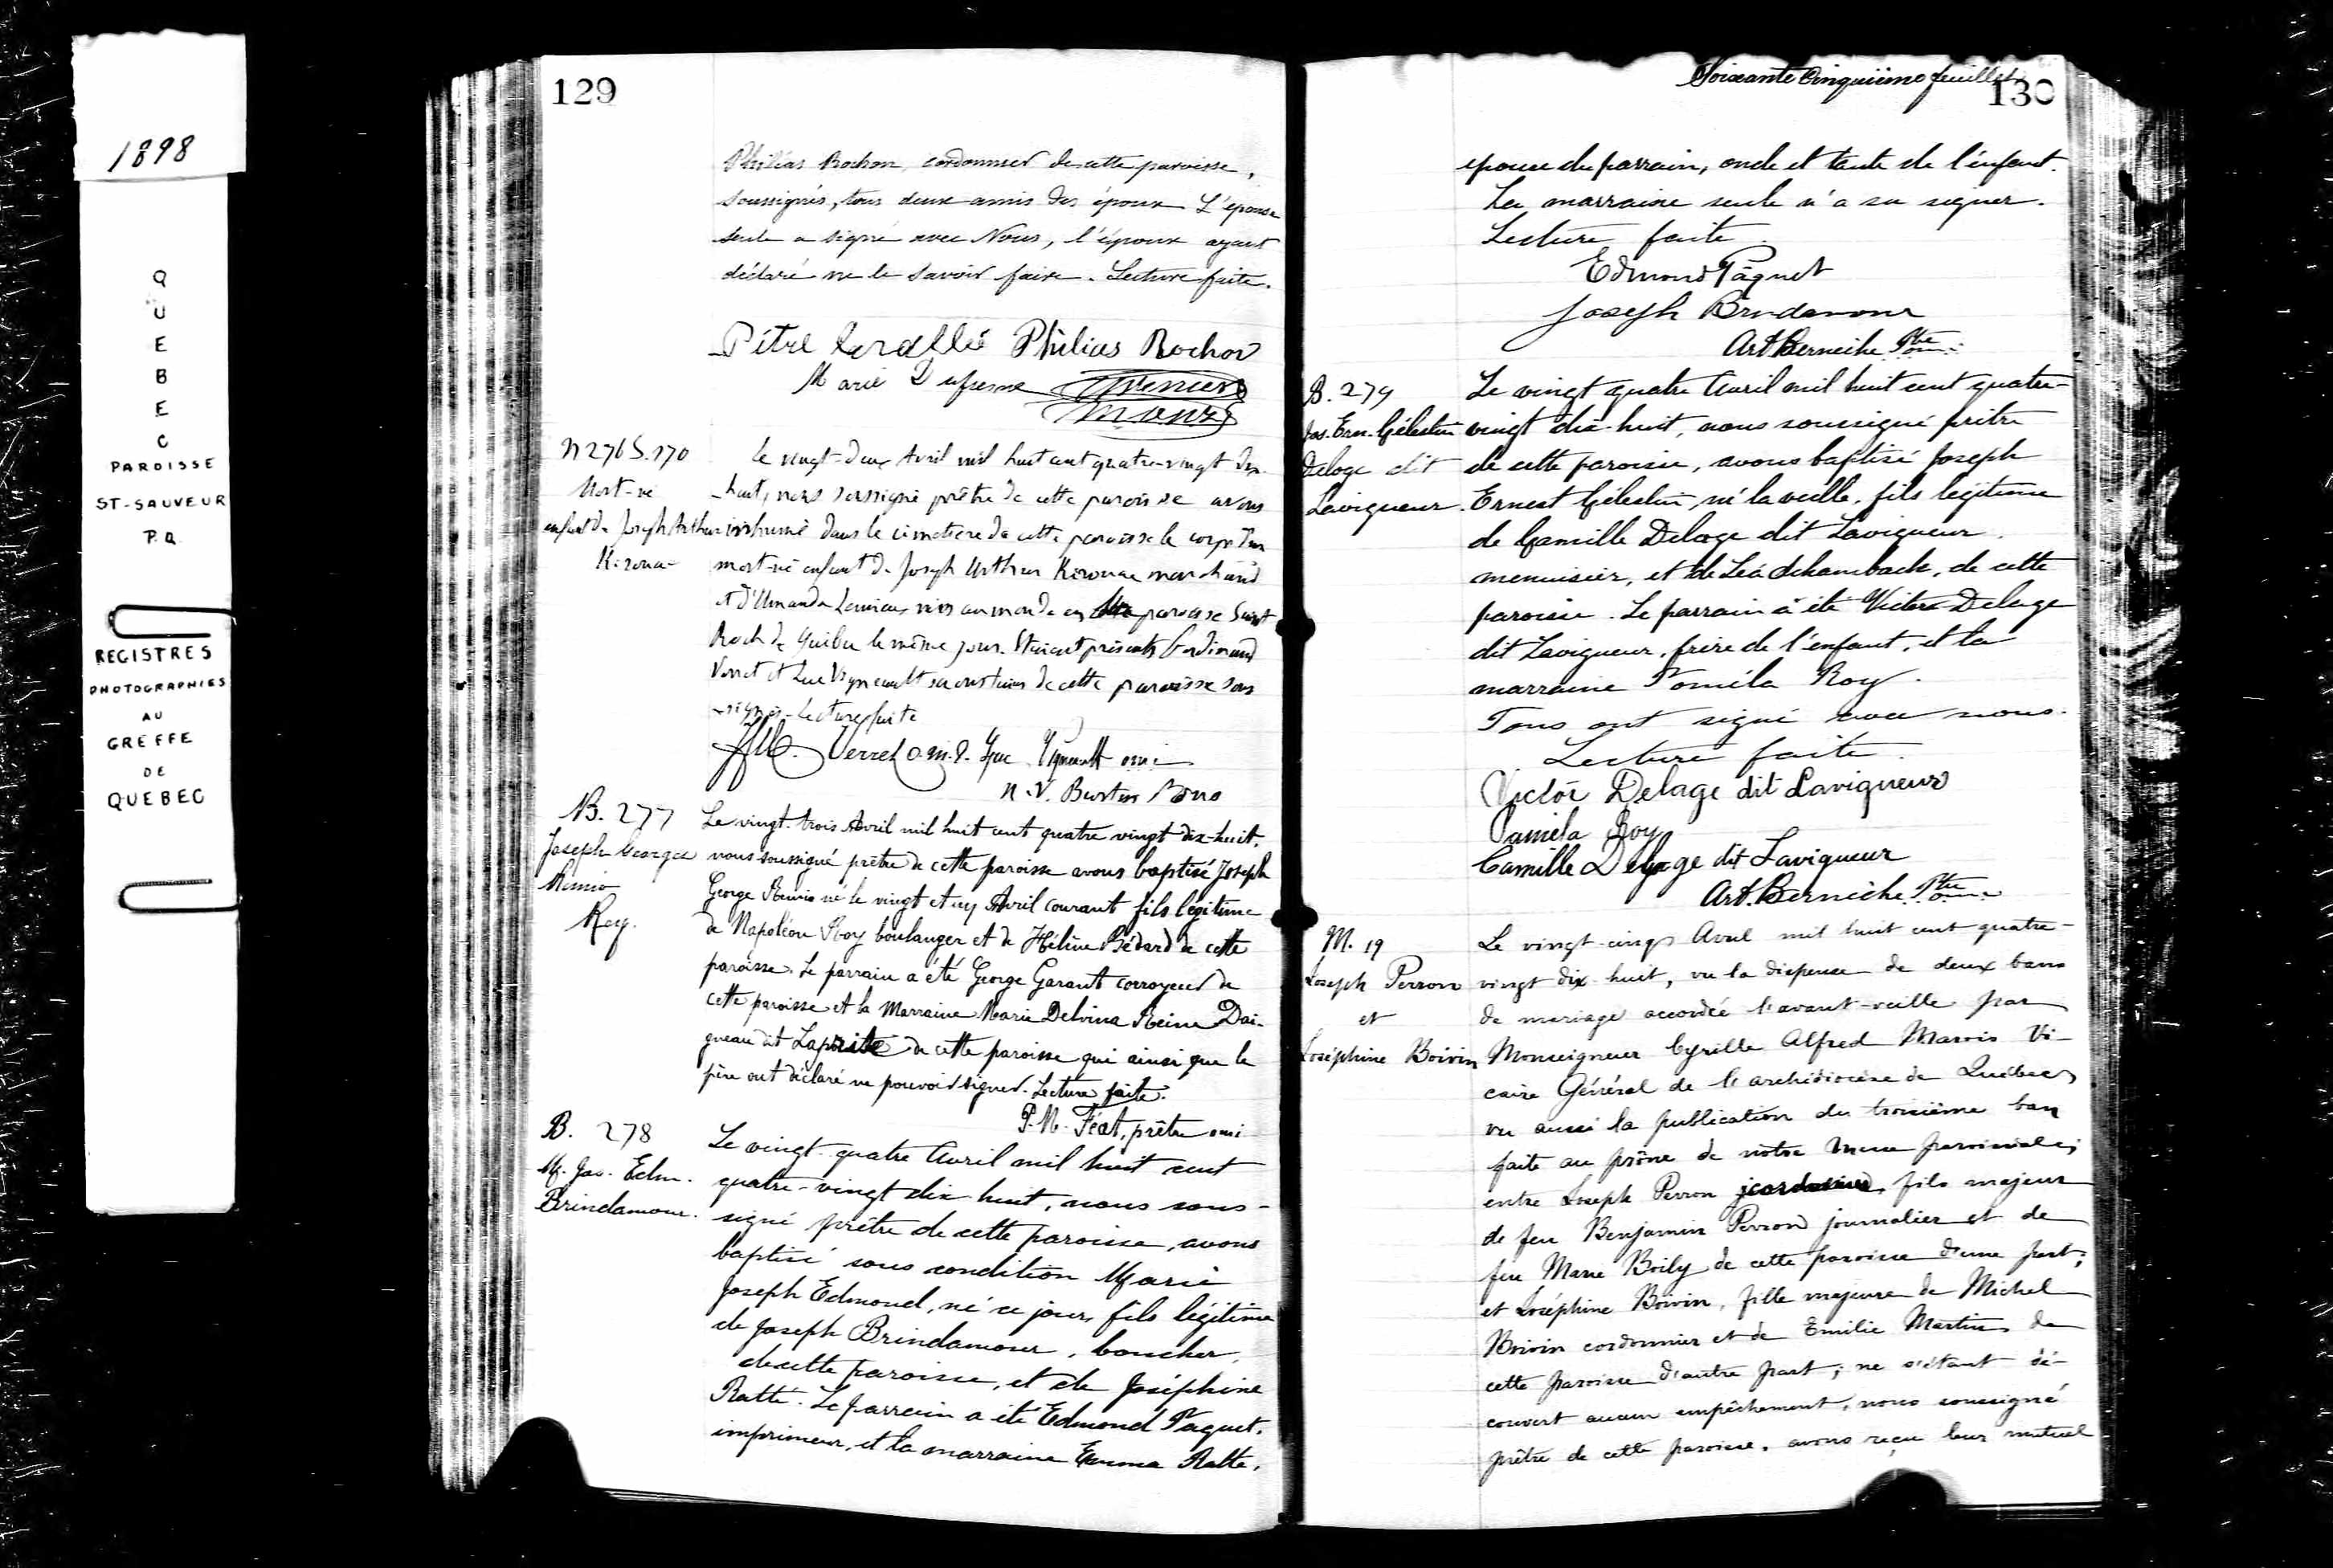 1898
QUEBEC
PAROISSE
ST-SAUVEUR
P.Q
REGISTRES
PHOTOGRAPHIES
AU
GREFFE
DE
QUEBEC
129
Philias Rochon, cordonnier de cette paroisse,
soussignés, tous deux amis des époux. L'épouse
seule a signé avec Nous, l'époux ayant
déclaré ne le savoir faire. Lecture faite.
Philias Rochon
Marie Dufresne
N 276 S. 170
Mort-né
enfant de Joseph Arthur
Kirouac
Le vingt-deux Avril mil huit cent quatre-vingt dix-
-huit, nous soussigné prêtre de cette paroisse avons
inhumé dans le cimetière de cette paroisse le corps d'un
mort-né enfant de Joseph Arthur Kirouac marchand
et d'Amanda Lemieux mis au monde en paroisse Saint
Roch de Québec le même jour. Etaient présents Ferdinand
Verret et Luc Vigneault sacristains de cette paroisse sous
-signés. Lecture faite
Verret o.m.i. Luc Vigneault omi
B. 277
Joseph George
Remio
Roy.
Le vingt-trois Avril mil huit cent quatre vingt dix-huit,
nous soussigné prêtre de cette paroisse avons baptisé Joseph
George Remio né le vingt et un Avril courant fils légitime
de Napoléon Roy boulanger et de Hélène Bédard de cette
paroisse. Le parrain a été George Garant corroyeur de
cette paroisse et la Marraine Marie Delvina Reine Dai-
gneau dit Laprise de cette paroisse qui ainsi que le
père ont déclaré ne pouvoir signer. Lecture faite.
P.M. Féat, prêtre omi
B. 278
M. Jos. Edm.
Brindamour.
Le vingt-quatre Avril mil huit cent
quatre-vingt dix-huit, nous sous-
signé prêtre de cette paroisse, avons
baptisé sous condition Marie
Joseph Edmond, né ce jour, fils légitime
de Joseph Brindamour, boucher,
de cette paroisse, et de Joséphine
Ratté. Le parrain a été Edmond Paquet,
imprimeur, et la marraine Emma Ratté,
Soixante Cinquième feuillet
130
épouse du parrain, oncle et tante de l'enfant.
La marraine seule n'a su signer.
Lecture faite.
Edmond Paquet
Joseph Brindamour
Art. Bernèche Ptre o.m.i.
B. 279
Jos. Ern. Célestin
Delage dit
Lavigueur.
Le vingt quatre Avril mil huit cent quatre-
vingt dix-huit, nous soussigné prêtre
de cette paroisse, avons baptisé Joseph
Ernest Célestin, né la veille, fils légitime
de Camille Delage dit Lavigueur
menuisier, et de Léa Schambach, de cette
paroisse. Le parrain a été Victor Delage
dit Lavigueur, frère de l'enfant, et la
marraine Paméla Roy.
Tous ont signé avec nous.
Lecture faite.
Victor Delage dit Lavigueur
Paméla Roy
Camille Delage dit Lavigueur
Art. Bernèche Ptre o.m.i.
M. 19
Joseph Perron
et
Joséphine Boivin
Le vingt-cinq Avril mil huit cent quatre-
vingt dix-huit, vu la dispense de deux bans
de mariage accordée l'avant-veille par
Monseigneur Cyrille Alfred Marois Vi-
caire Général de l'archidiocèse de Québec,
vu aussi la publication du troisième ban
faite au prône de notre messe paroissiale;
entre Joseph Perron fils majeur
de feu Benjamin Perron journalier et de
feu Marie Boily de cette paroisse d'une part;
et Joséphine Boivin, fille majeure de Michel
Boivin cordonnier et de Emilie Martin de
cette paroisse d'autre part; ne s'étant dé-
couvert aucun empêchement, nous soussigné
prêtre de cette paroisse, avons reçu leur mutuel